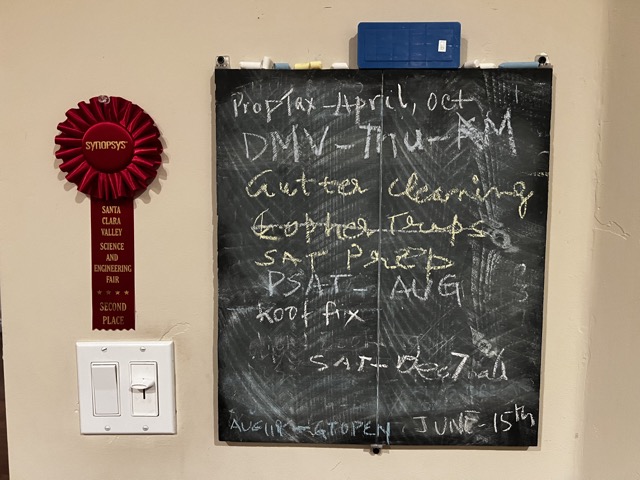 SYNOPSYS
SANTA
CLARA
VALLEY
SCIENCE
AND
ENGINEERING
FAIR
SECOND
PLACE
PropTax - April, Oct
DMV - Thu - AM
Gutter cleaning
Gopher Traps
SAT PREP
PSAT - AUG
Roof fix
SAT - Dec 7
AUG GT OPEN JUNE - 15th